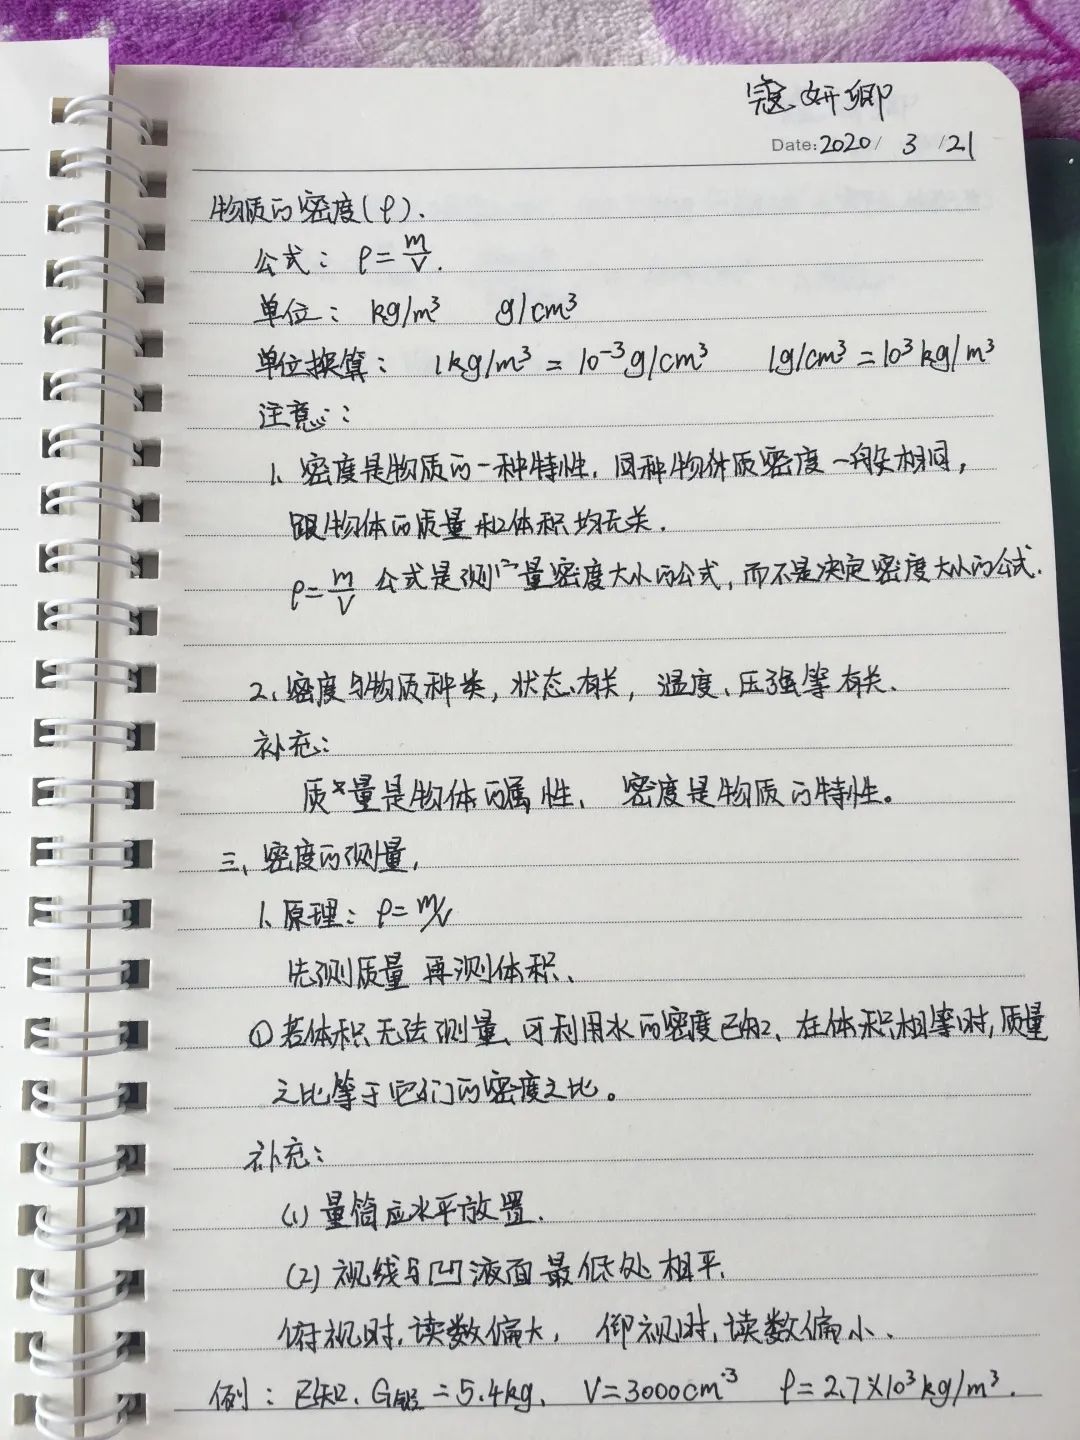 寇妍卿
Date: 2020/ 3 /21
物质的密度(ρ).
公式: ρ=m/V.
单位: kg/m³ g/cm³
单位换算: 1kg/m³ = 10⁻³g/cm³ 1g/cm³ = 10³kg/m³
注意:
1、密度是物质的一种特性, 同种物体质密度一般相同,
跟物体的质量和体积均无关.
ρ=m/V 公式是测量密度大小的公式, 而不是决定密度大小的公式.
2、密度与物质种类, 状态有关, 温度、压强等有关.
补充:
质量是物体的属性、密度是物质的特性。
三、密度的测量,
1、原理: ρ=m/V
先测质量 再测体积、
①若体积无法测量、可利用水的密度已知、在体积相等时, 质量
之比等于它们的密度之比。
补充:
(1) 量筒应水平放置.
(2) 视线与凹液面最低处相平.
俯视时, 读数偏大, 仰视时, 读数偏小.
例: 已知、G铝=5.4kg、 V=3000cm³ ρ=2.7×10³kg/m³.